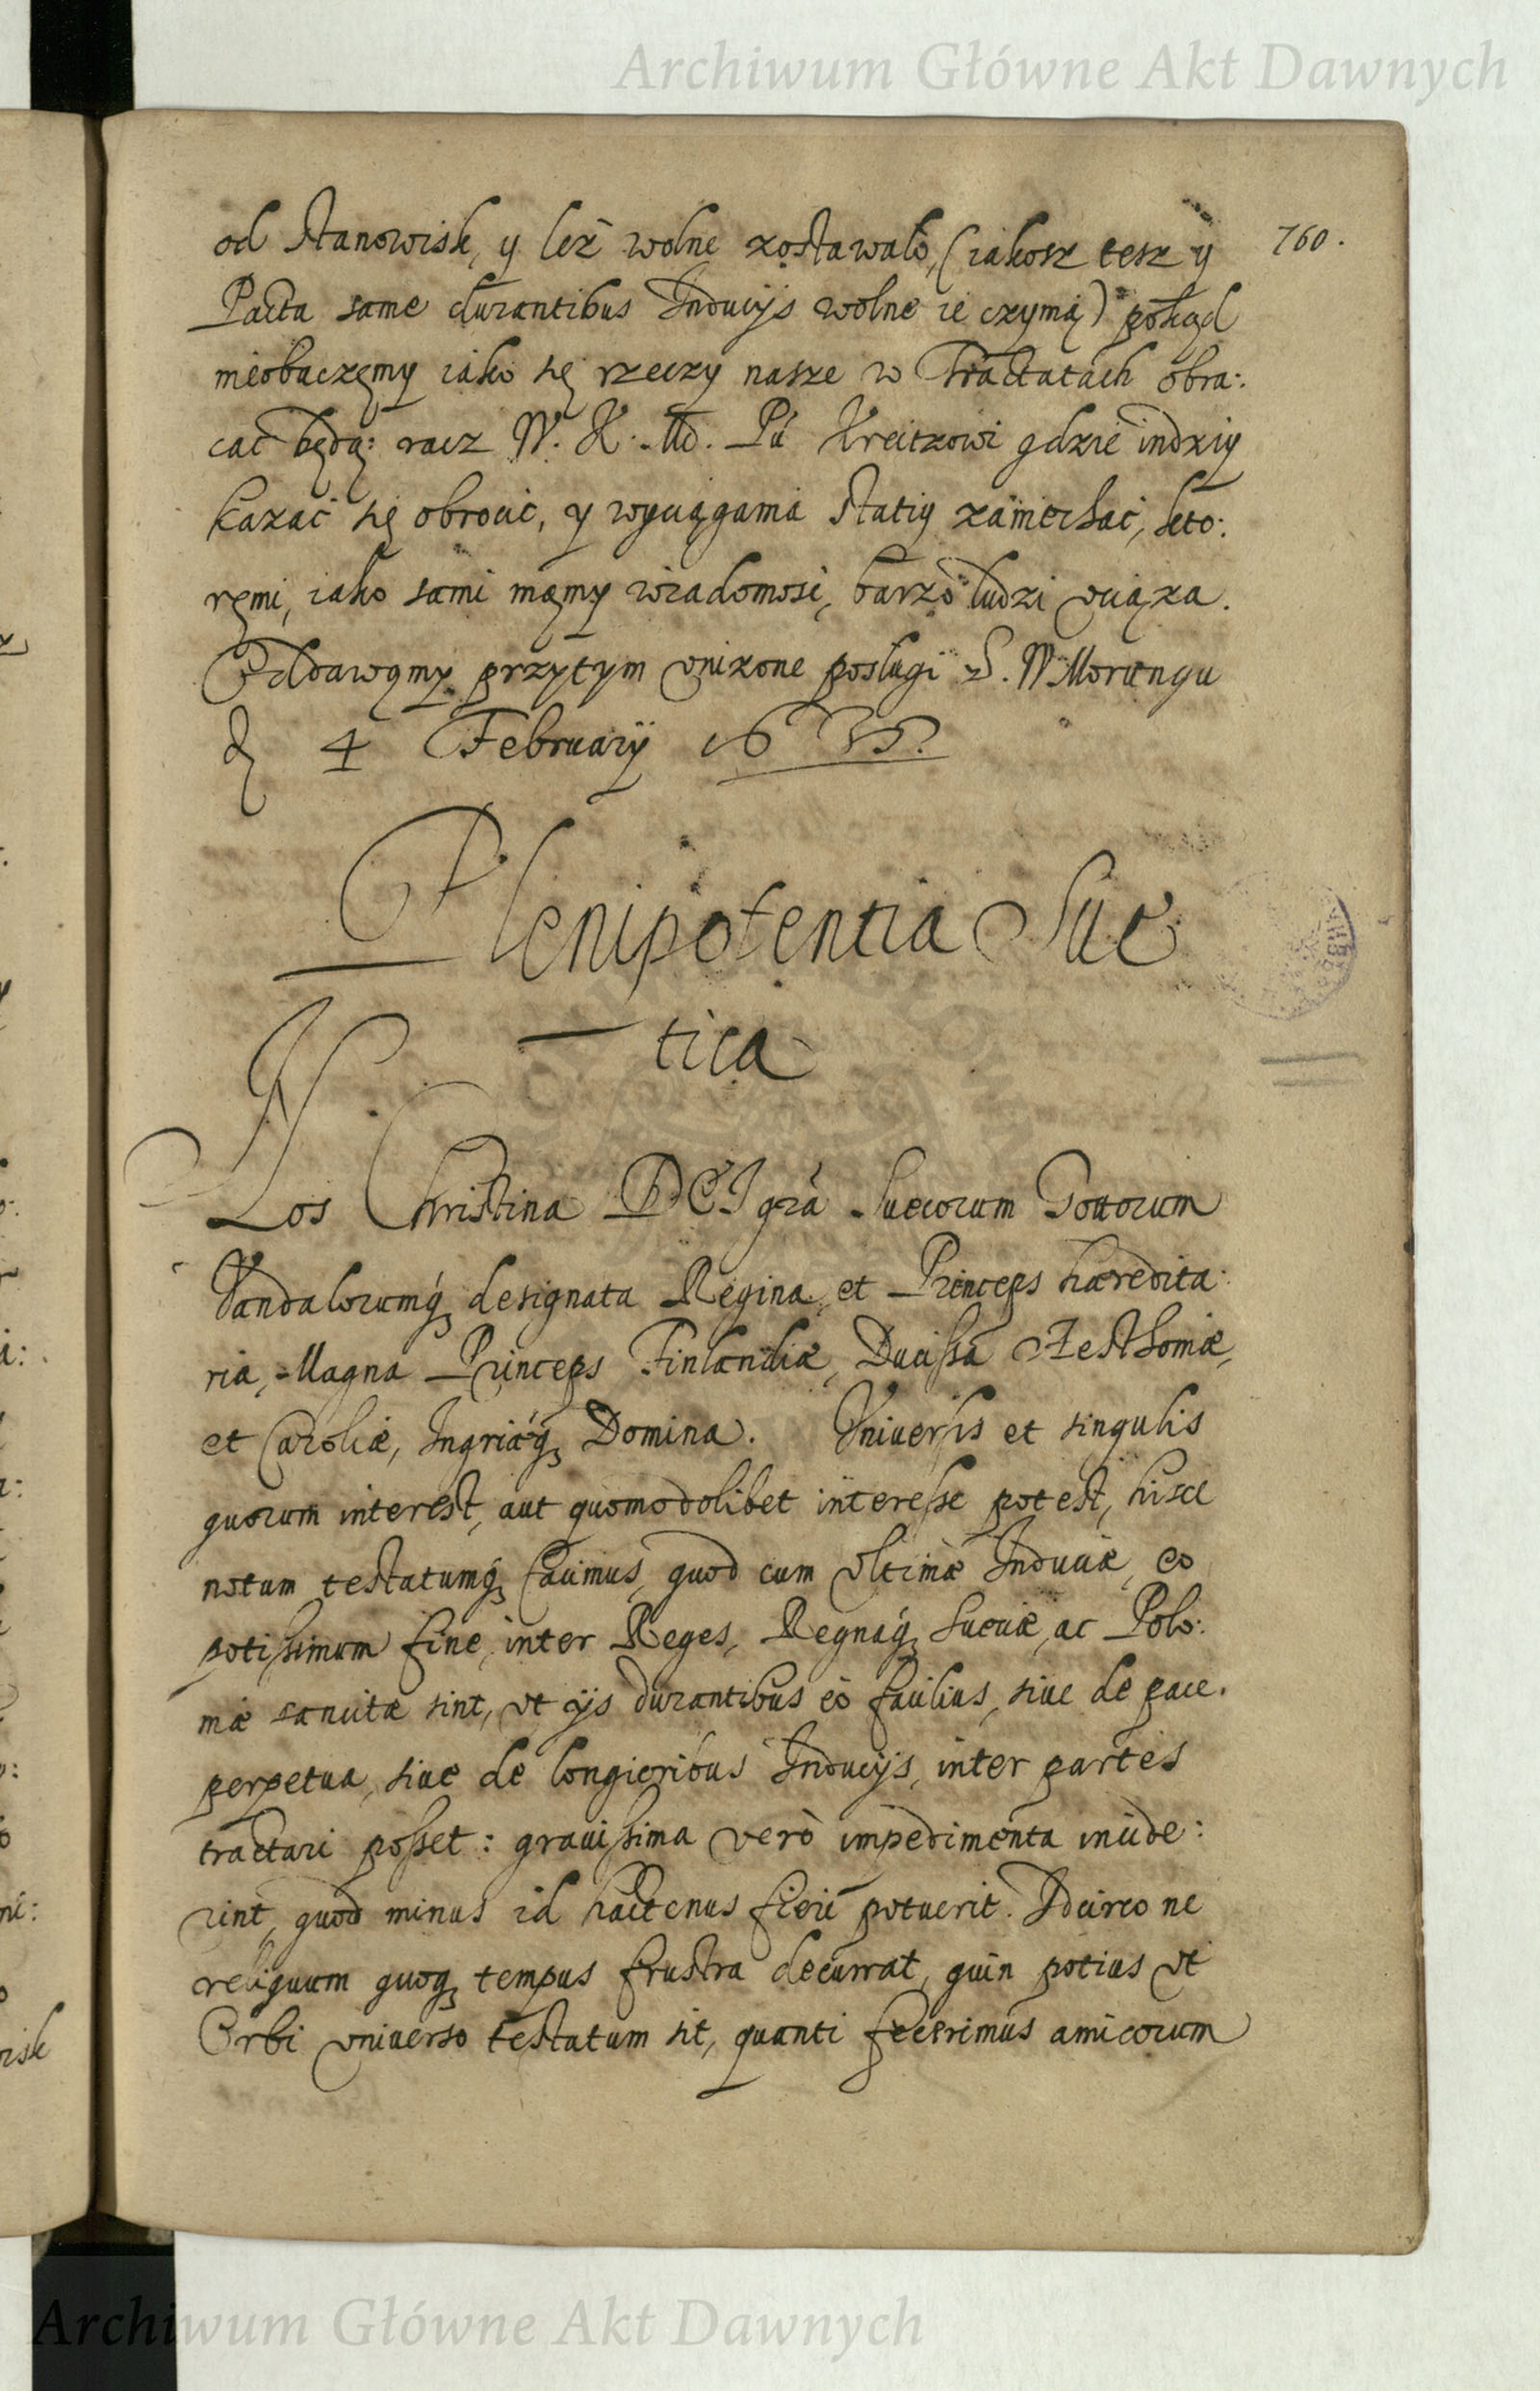 Archiwum Główne Akt Dawnych
760.
od Stanowisk, y leż wolne zostawało, (iakosz tesz y
Pacta same durantibus Inducijs wolne ie czymą) pokąd
nieobaczęmy iako się rzeczy nasze w Tractatach obra:
cać będą: racz W. K. Md. Pu Kreitzowi gdzie indziy
kazać się obrocić, y wyciągania Statiy zaniechać, kto:
ręmi, iako sami mąmy wiadomość, barzo ludzi vciąza.
Oddawąmy przytym vnizone posługi S. W Morungu
d 4 February 1635.
Plenipotentia Sue
tica
Nos Christina DEI grã Suecorum Gottorum
Vandalorumq́ designata Regina, et Princeps hæredita:
ria, Magna Princeps Finlandiæ, Ducissa Æesthoniæ,
et Caroliæ, Ingriæq́ Domina. Vniuersis et singulis
quorum interest, aut quomodolibet interesse potest, hisce
notum testatumq́ facimus, quod cum vltimæ Induciæ, eo
potissimum fine, inter Reges, Regnaq́ Sueciæ, ac Polo:
niæ sancitæ sint, vt ijs durantibus eò facilius, siue de pace
perpetua, siue de longioribus Inducijs, inter partes
tractari posset: grauissima verò impedimenta incide:
rint, quod minus id hactenus fieri potuerit. Idcirco ne
reliquum quoq́ tempus frustra decurrat, quin potius vt
Orbi vniuerso testatum sit, quanti fecerimus amicorum
Archiwum Główne Akt Dawnych